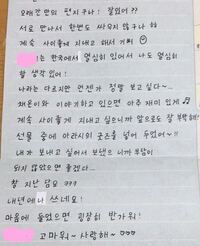 오래간만의 편지구나! 잘있어??
서로 만나서 한번도 싸우지 않구나 ㅎㅎ
계속 사이좋게 지내고 해서 기뻐
는 한국에서 열심히 있어서 나도 열심히
할 생각 있어!
나라는 다르지만 언젠가 정말 보고 싶다~
채은이와 이야기하고 있으면 아주 재미 있게
계속 사이좋게 지내고 싶으니까 앞으로도 잘 부탁해!
선물 중에 아라시의 굿즈를 넣어 두었어~!!
내가 보내고 싶어서 보냈으니까 부담이
되지 않았으면 좋겠다...
잘 지난 답요 ???
내년에나 쓰네요!
마음에 들었으면 굉장히 반가워!
고마워~ 사랑해~ ♡♡♡